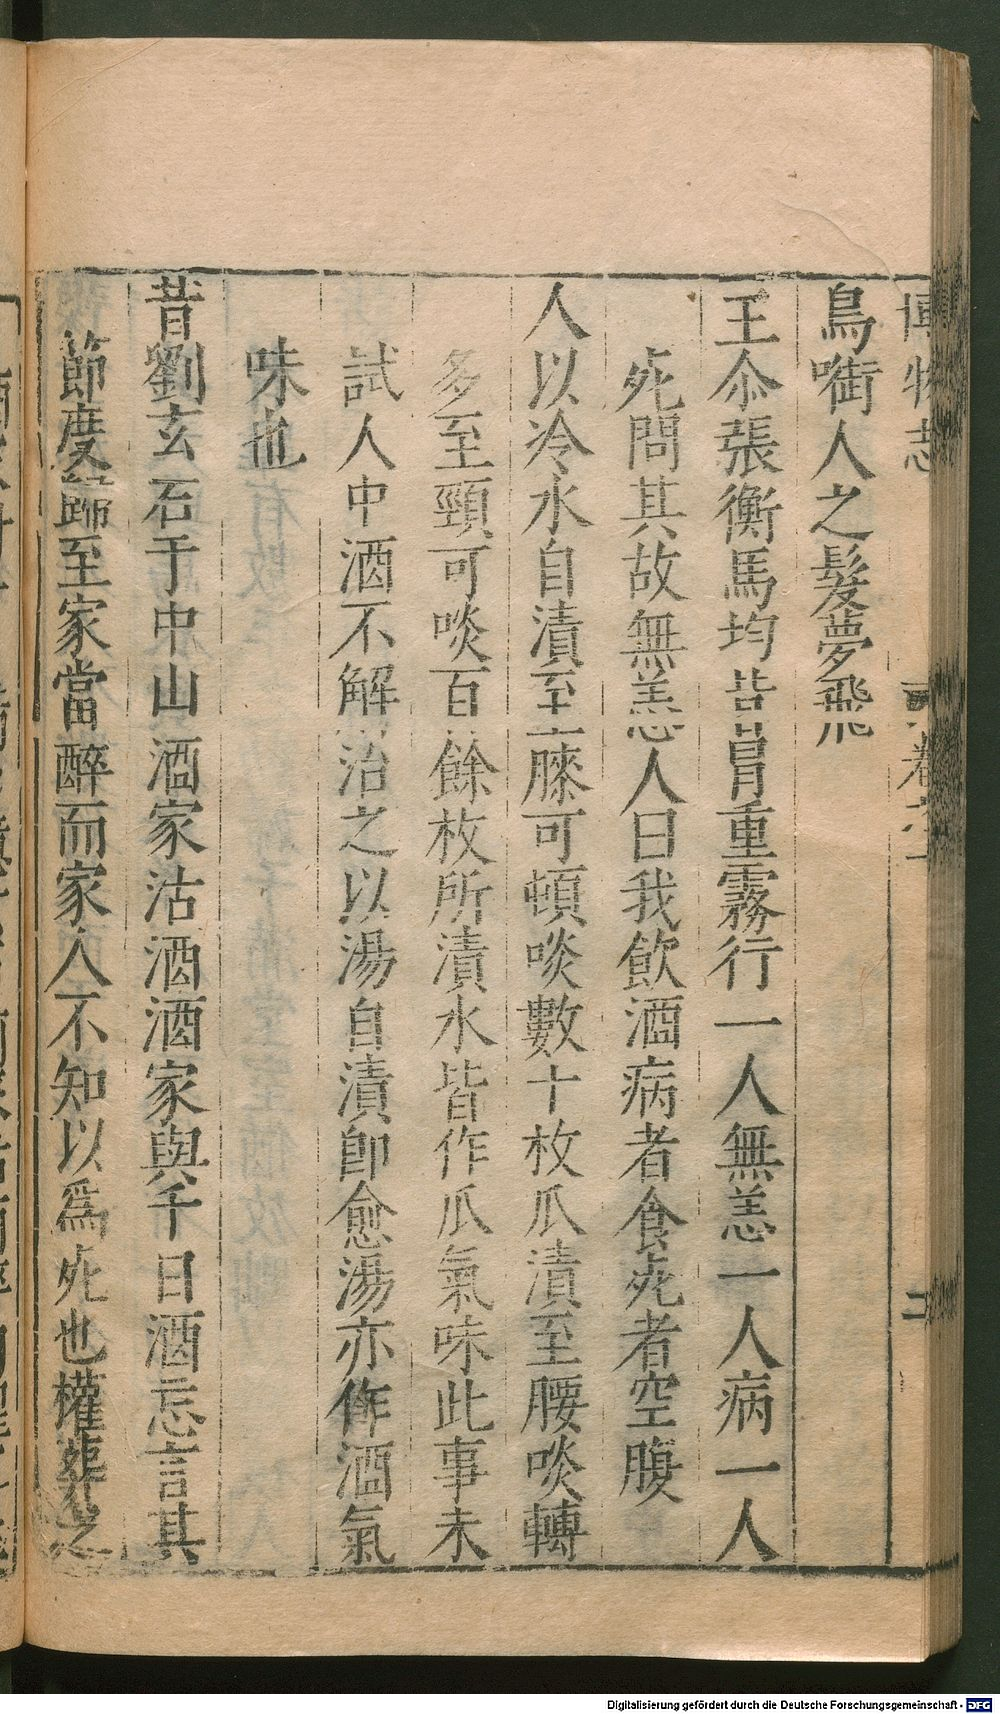 博物志 卷之十 二
鳥㗸人之髮夢飛
王尒張衡馬均昔冒重霧行一人無恙一人病一人
死問其故無恙人曰我飲酒病者食死者空腹
人以冷水自漬至膝可頓啖數十枚瓜漬至腰啖轉
多至頸可啖百餘枚所漬水皆作瓜氣味此事未
試人中酒不解治之以湯自漬即愈湯亦作酒氣
味也
昔劉玄石于中山酒家沽酒酒家與千日酒忘言其
節度歸至家當醉而家人不知以爲死也權葬之
Digitalisierung gefördert durch die Deutsche Forschungsgemeinschaft - DFG